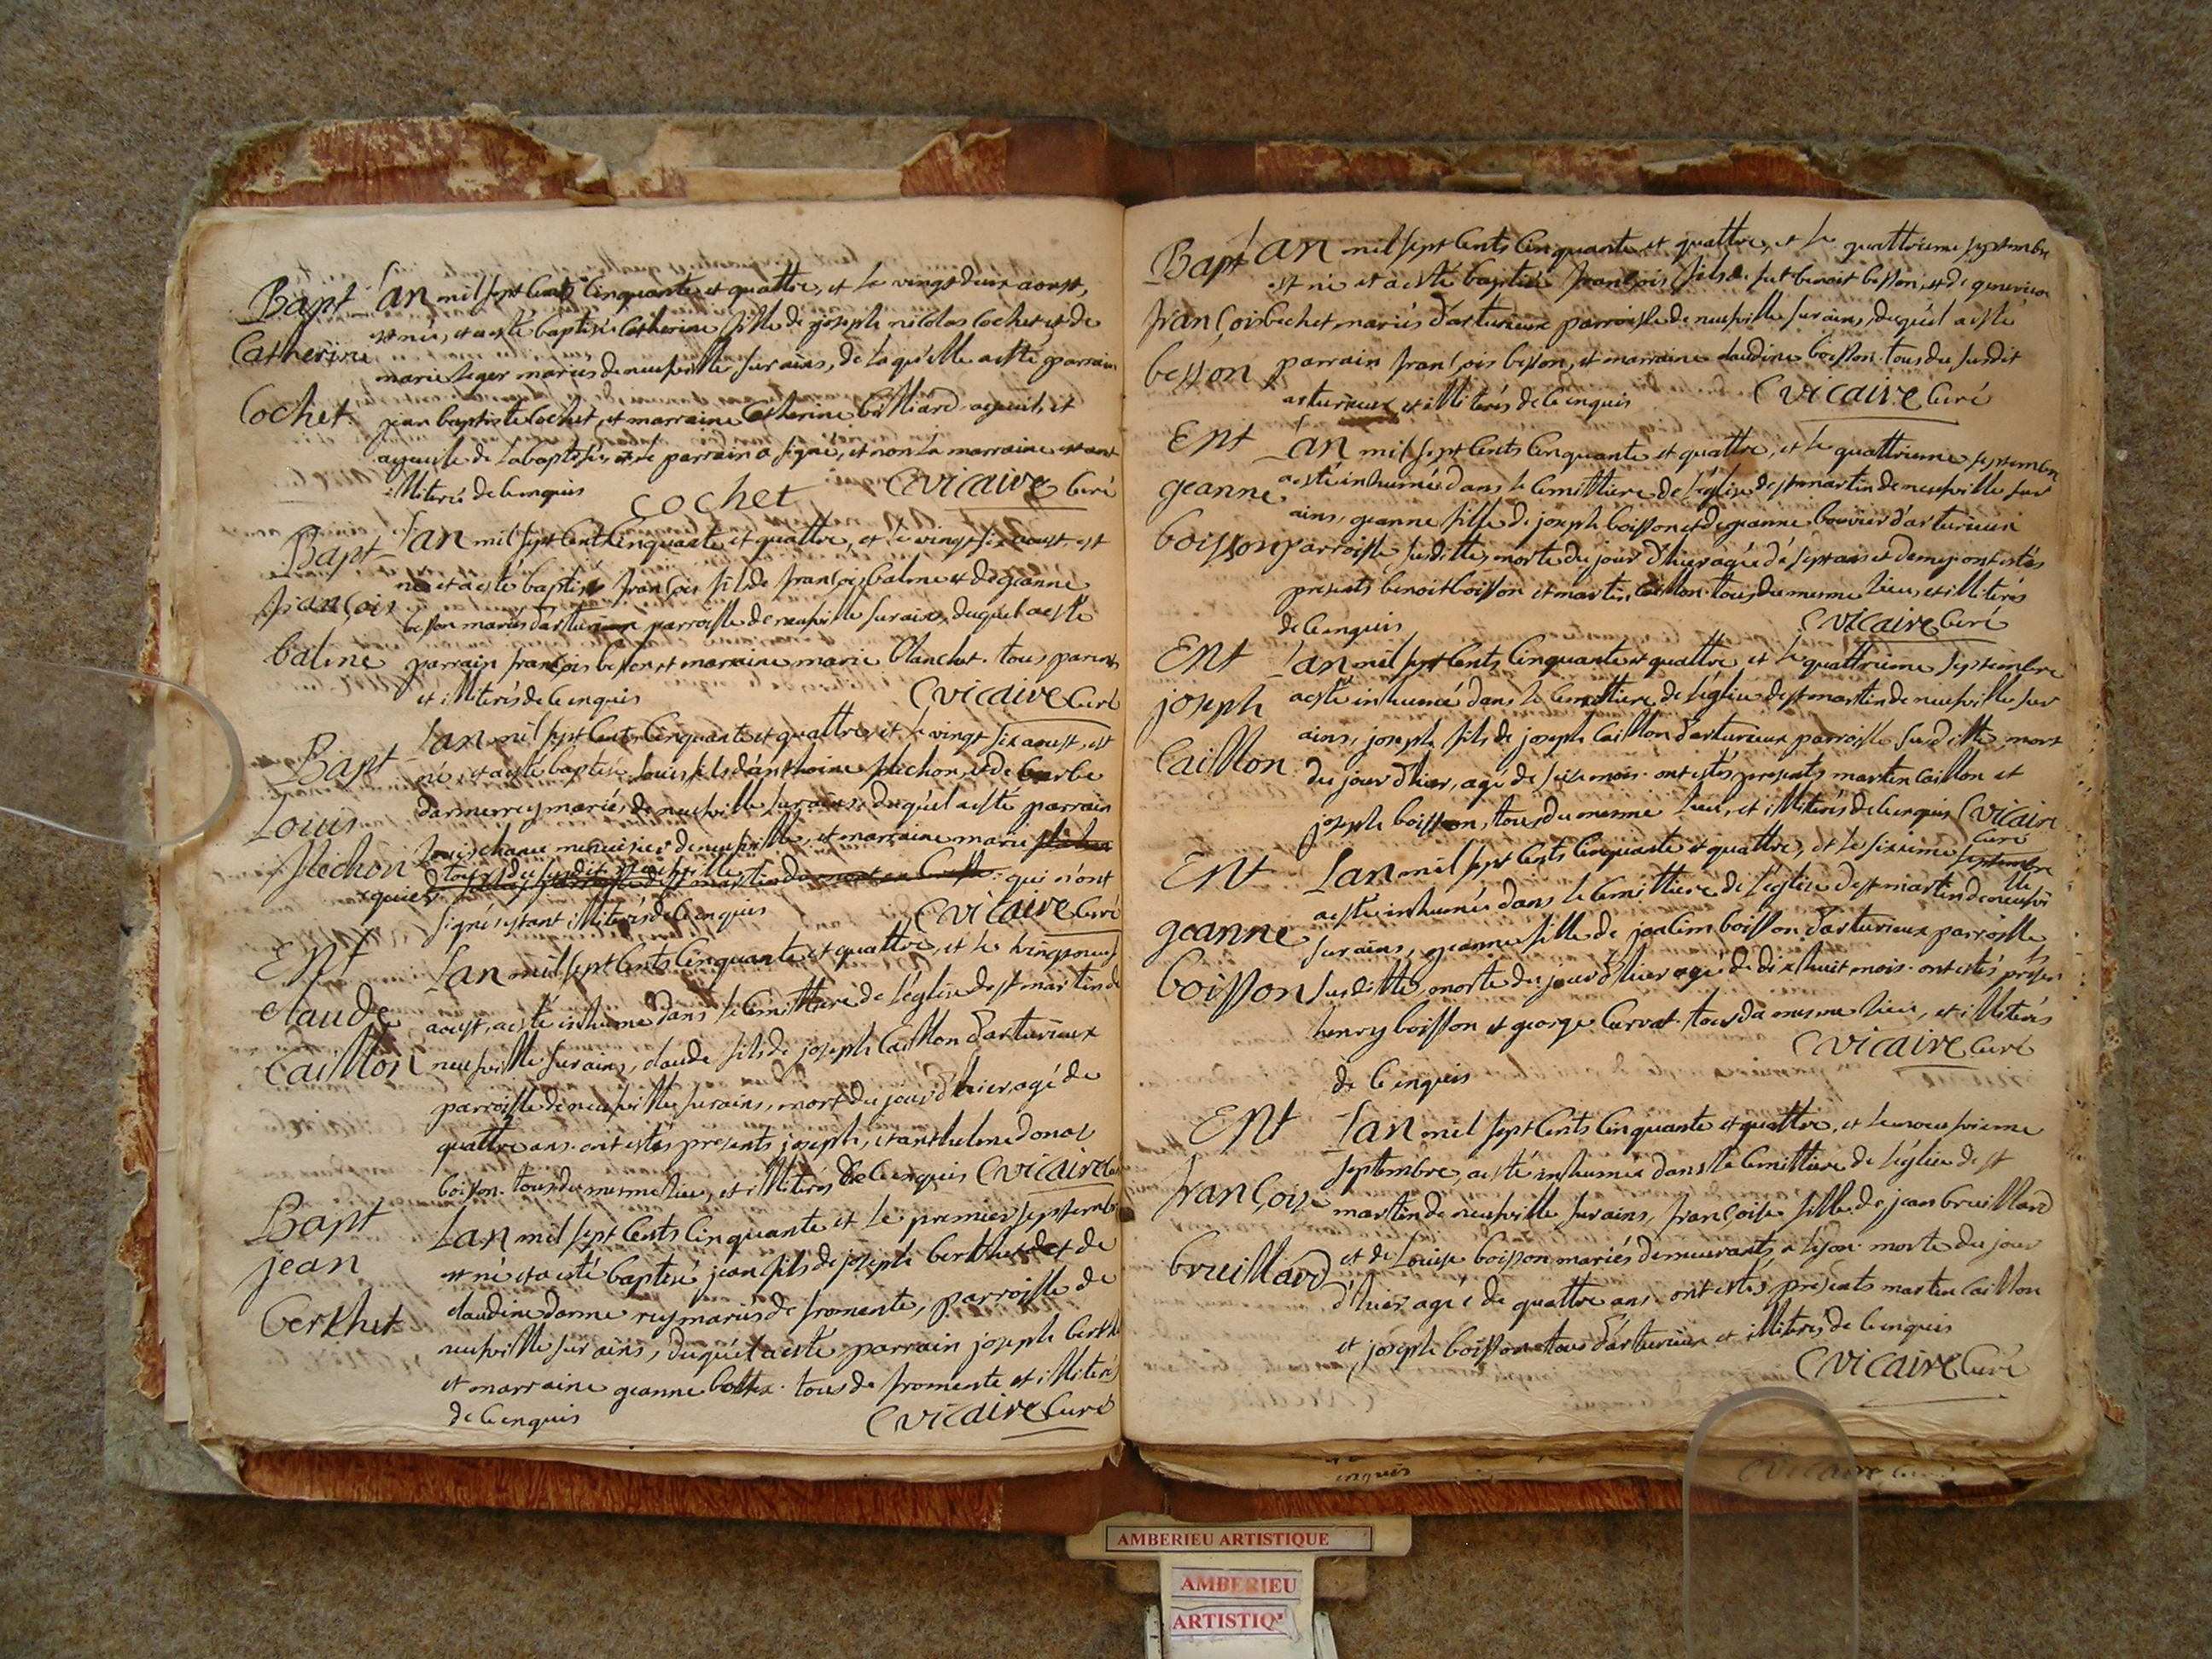 Bapt
Catherine
Cochet
Lan mil sept Cents Cinquante et quattre, et le vingt deux aoust,
est née, et a esté baptisée Catherine fille de joseph nicolas Cochet et de
marie leger mariés de neufville sur ains, de laquelle a esté parrain
jean baptiste Cochet, et marraine Catherine billiard ayeuls et
ayeule de la baptisée, et le parrain a signé, et non la marraine estant
illiterée de ce enquis
Cochet
C vicaire Curé
Bapt
françois
balme
Lan mil sept Cent Cinquante et quattre, et le vingt six aoust est
né et a esté baptisé françois fils de françois balme et de geanne
besson mariés d'arturieux parroisse de neufville sur ains, duquel a esté
parrain françois besson et marraine marie blanchet. tous parents
et illiterés de ce enquis
C vicaire Curé
Bapt
Louis
flechon
Lan mil sept Cent Cinquante et quattre, et le vingt six aoust, est
né, et a esté baptisé Louis fils d'anthoine flechon, et de barbe
darmerrey mariés, de neufville sur ains, duquel a esté parrain
Louis menuisier de neufville, et marraine marie
tous du susdit neufville qui n'ont
signé estant illiterés de ce enquis
C vicaire Curé
Ent
claude
Caillon
Lan mil sept Cents Cinquante et quattre, et le vingt neuf
aoust, a esté inhumé dans le Cemittiere de l'église de st martin de
neufville sur ains, claude fils de joseph Caillon d'arturieux
parroisse de neufville sur ains, mort du jour d'hier agé de
quattre ans. ont estés presents joseph, et anthelme donat
boisson. tous du mesme lieu, et illiterés de ce enquis C vicaire Curé
Bapt
jean
berthet
Lan mil sept Cents Cinquante et le premier septembre
est né et a esté baptisé jean fils de joseph berthet et de
claudine donne rey mariés de fromente, parroisse de
neufville sur ains, duquel a esté parrain joseph berthet
et marraine geanne bottex. tous de fromente et illiterés
de ce enquis
C vicaire Curé
Bapt
françois
besson
Lan mil sept Cents Cinquante et quattre, et le quattrieme septembre
est né et a esté baptisé françois fils de fut benoit besson, et de genevieve
bechet mariés d'arturieux parroisse de neufville sur ains, duquel a esté
parrain françois besson, et marraine claudine boisson. tous du susdit
arturieux et illiterés de ce enquis
C vicaire Curé
Ent
geanne
boisson
Lan mil sept Cents Cinquante et quattre, et le quattrieme septembre
a esté inhumée dans le Cemittiere de l'église de st martin de neufville sur
ains, geanne fille de joseph boisson et de geanne bouvier d'arturieux
parroisse susditte, morte du jour d'hier agée de sept ans et demy. ont estés
presents benoit boisson et martin Caillon. tous du mesme lieu, et illiterés
de ce enquis
C vicaire Curé
Ent
joseph
Caillon
Lan mil sept Cents Cinquante et quattre et le quattrieme septembre
a esté inhumé dans le Cemittiere de l'église de st martin de neufville sur
ains, joseph fils de joseph Caillon d'arturieux parroisse susditte, mort
du jour d'hier, agé de seize mois. ont estés presents martin Caillon et
joseph boisson, tous du mesme lieu, et illiterés de ce enquis C vicaire
Curé
Ent
geanne
boisson
Lan mil sept Cents Cinquante et quattre, et le sixieme septembre
a esté inhumée dans le Cemittiere de l'église de st martin de neufville
sur ains, geanne fille de joachim boisson d'arturieux parroisse
susditte, morte du jour d'hier agée de dix huit mois. ont estés présents
henry boisson et george Curvat. tous du mesme lieu, et illiterés
de ce enquis
C vicaire Curé
Ent
françoise
breillard
Lan mil sept Cents Cinquante et quattre, et le neufvieme
septembre, a esté inhumée dans le Cemittiere de l'église de st
martin de neufville sur ains, françoise fille de jean breillard
et de Louise boisson mariés demeurants a lyon. morte du jour
d'hier agée de quattre ans. ont estés presents martin Caillon
et joseph boisson tous d'arturieux et illiterés de ce enquis
C vicaire Curé
enquis
AMBERIEU ARTISTIQUE
AMBERIEU
ARTISTIQ